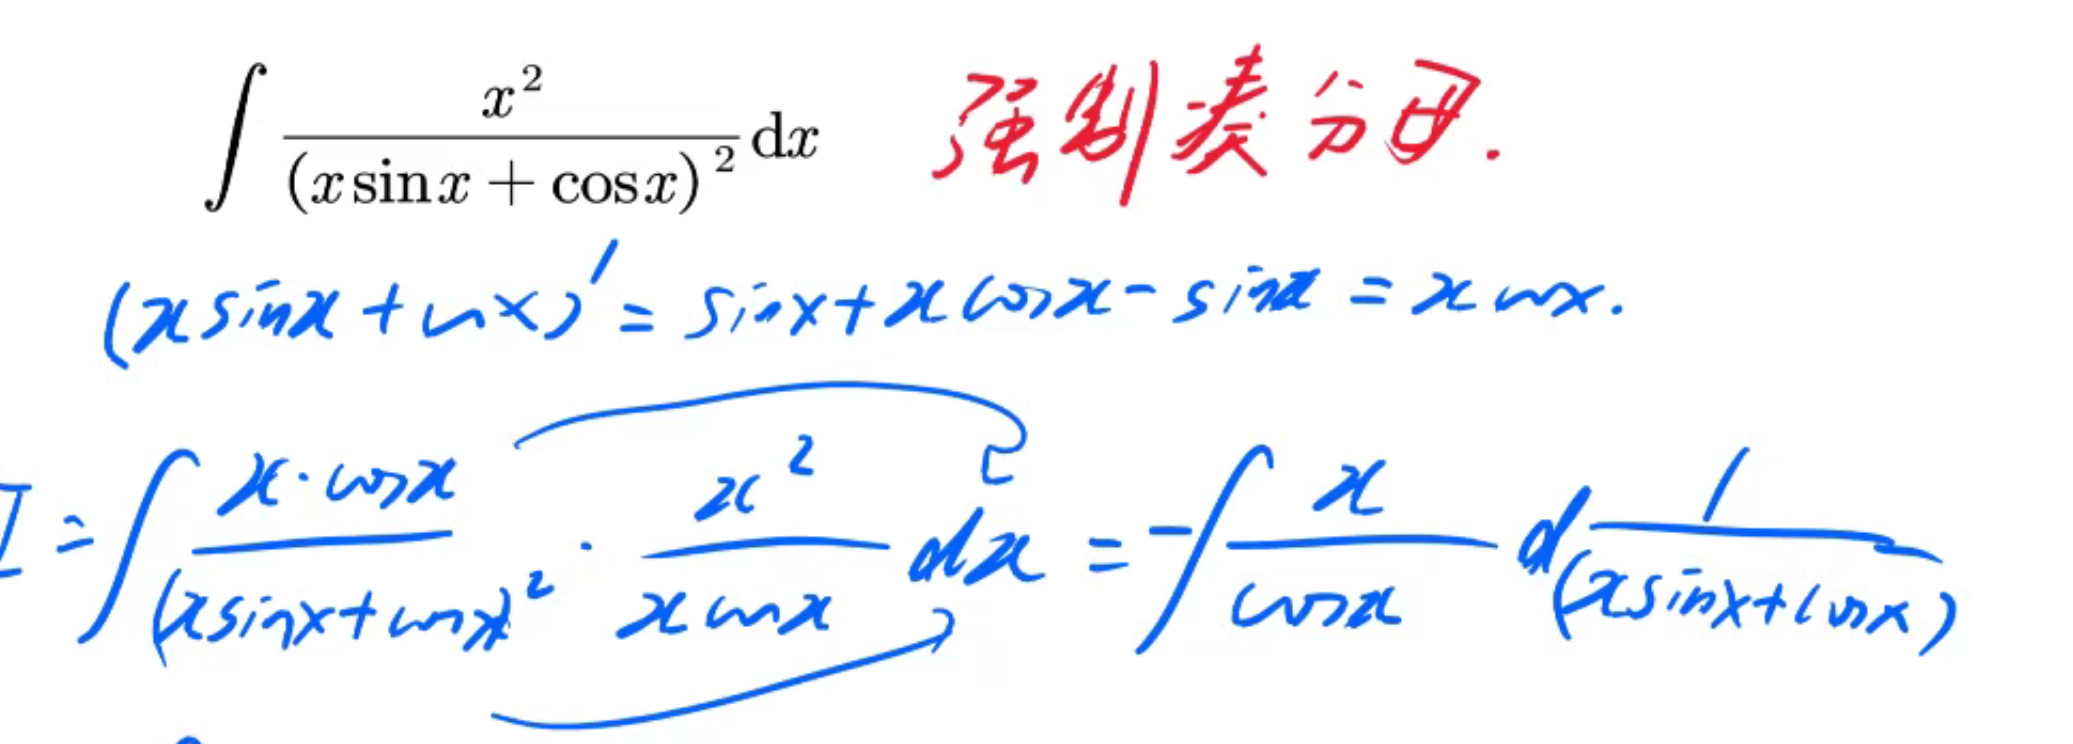 ∫ x²/(x sin x + cos x)² dx 强制凑分母.
(x sinx + cosx)' = sinx + x cosx - sinx = x cosx.
I = ∫ x·cosx/(x sinx + cosx)² · x²/(x cosx) dx = -∫ x/cosx d 1/(x sinx + cosx)